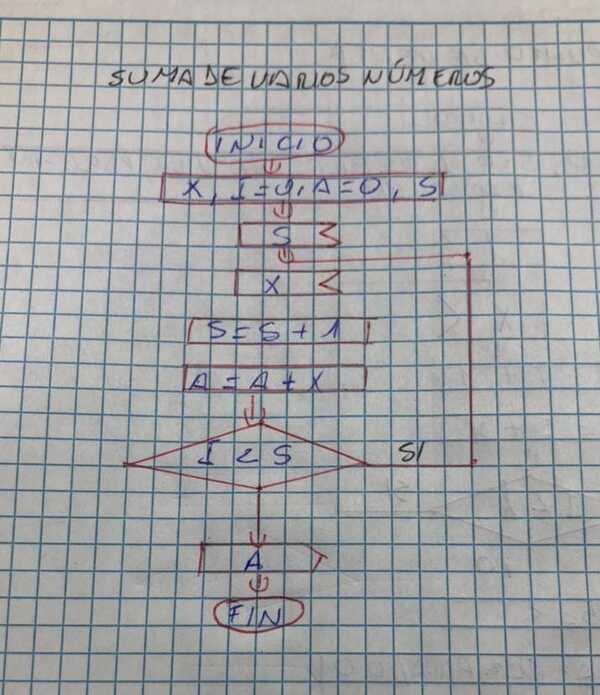 SUMA DE VARIOS NÚMEROS
INICIO
X, I=0, A=0, S
S
X
S=S+1
A=A+X
I<S
SI
A
FIN